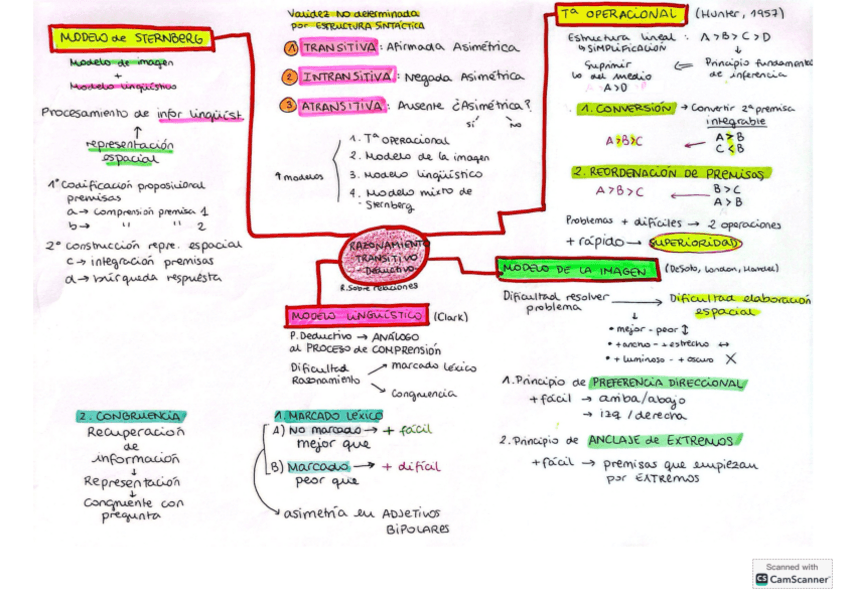 MODELO de STERNBERG
Modelo de imagen
+
Modelo lingüístico
Procesamiento de infor lingüíst
↑
representación
espacial
1º Codificación proposicional
premisas
a → comprensión premisa 1
b → " " 2
2º construcción repre. espacial
c → integración premisas
d → búsqueda respuesta
Validez No determinada
por ESTRUCTURA SINTÁCTICA
1 TRANSITIVA: Afirmada Asimétrica
2 INTRANSITIVA: Negada Asimétrica
3 ATRANSITIVA: Ausente ¿Asimétrica?
sí no
4 modelos
1. Tª OPERACIONAL
2. Modelo de la imagen
3. Modelo lingüístico
4. Modelo mixto de
Sternberg
Tª OPERACIONAL (Hunter, 1957)
Estructura lineal: A>B>C>D
↳ SIMPLIFICACIÓN ↓
Suprimir ⇐ Principio fundament
lo del medio de inferencia
A>D
1. CONVERSIÓN → Convertir 2ª premisa
integrable
A>B>C ← A>B
C<B
2. REORDENACIÓN DE PREMISAS
A>B>C ← B>C
A>B
Problemas + difíciles → 2 operaciones
+ rápido → SUPERIORIDAD
RAZONAMIENTO
TRANSITIVO
- DEDUCTIVO -
R. Sobre relaciones
MODELO DE LA IMAGEN (DeSoto, London, Handel)
Dificultad resolver → Dificultad elaboración
problema espacial
↓
• mejor - peor ↕
• + ancho - + estrecho ↔
• + luminoso - + oscuro X
1. Principio de PREFERENCIA DIRECCIONAL
+ fácil → arriba/abajo
→ izq / derecha
2. Principio de ANCLAJE de EXTREMOS
+ fácil → premisas que empiezan
por EXTREMOS
MODELO LINGÜÍSTICO (Clark)
P. Deductivo → ANÁLOGO
al PROCESO de COMPRENSIÓN
Dificultad → marcado léxico
Razonamiento → congruencia
1. MARCADO LÉXICO
A) No marcado → + fácil
mejor que
B) Marcado → + difícil
peor que
asimetría en ADJETIVOS
BIPOLARES
2. CONGRUENCIA
Recuperación
de
información
↓
Representación
↓
Congruente con
pregunta
Scanned with
CS CamScanner